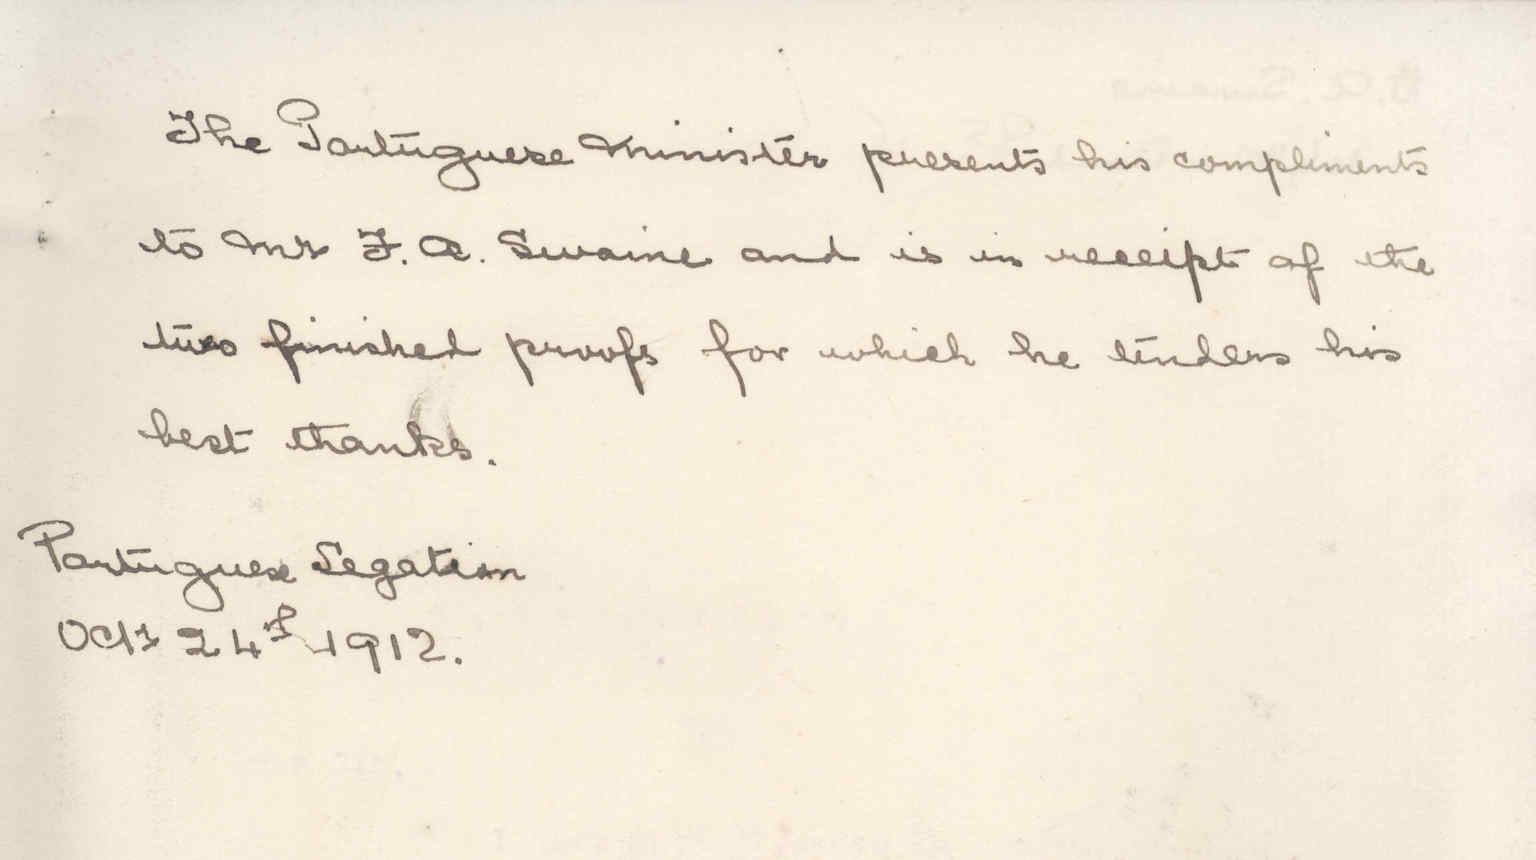 The Portuguese Minister presents his compliments
to Mr F. A. Swaine and is in receipt of the
two finished proofs for which he tenders his
best thanks.
Portuguese Legation
Oct 24th 1912.